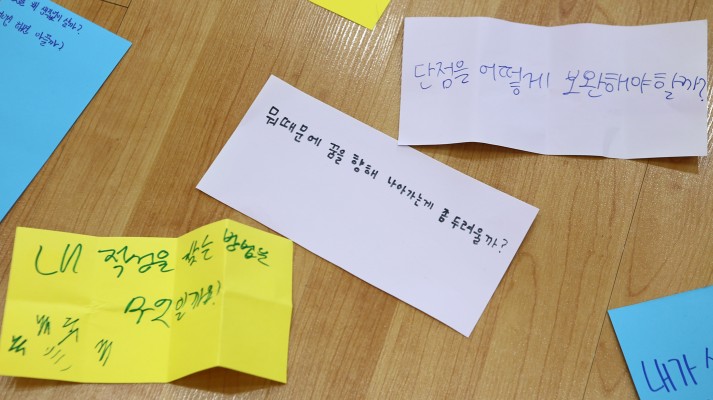 아플까?
단점을 어떻게 보완해야할까?
뭐때문에 꿈을 향해 나아가는게 좀 두려울까?
내 적성을 찾는 방법은
무엇일까요?
내가